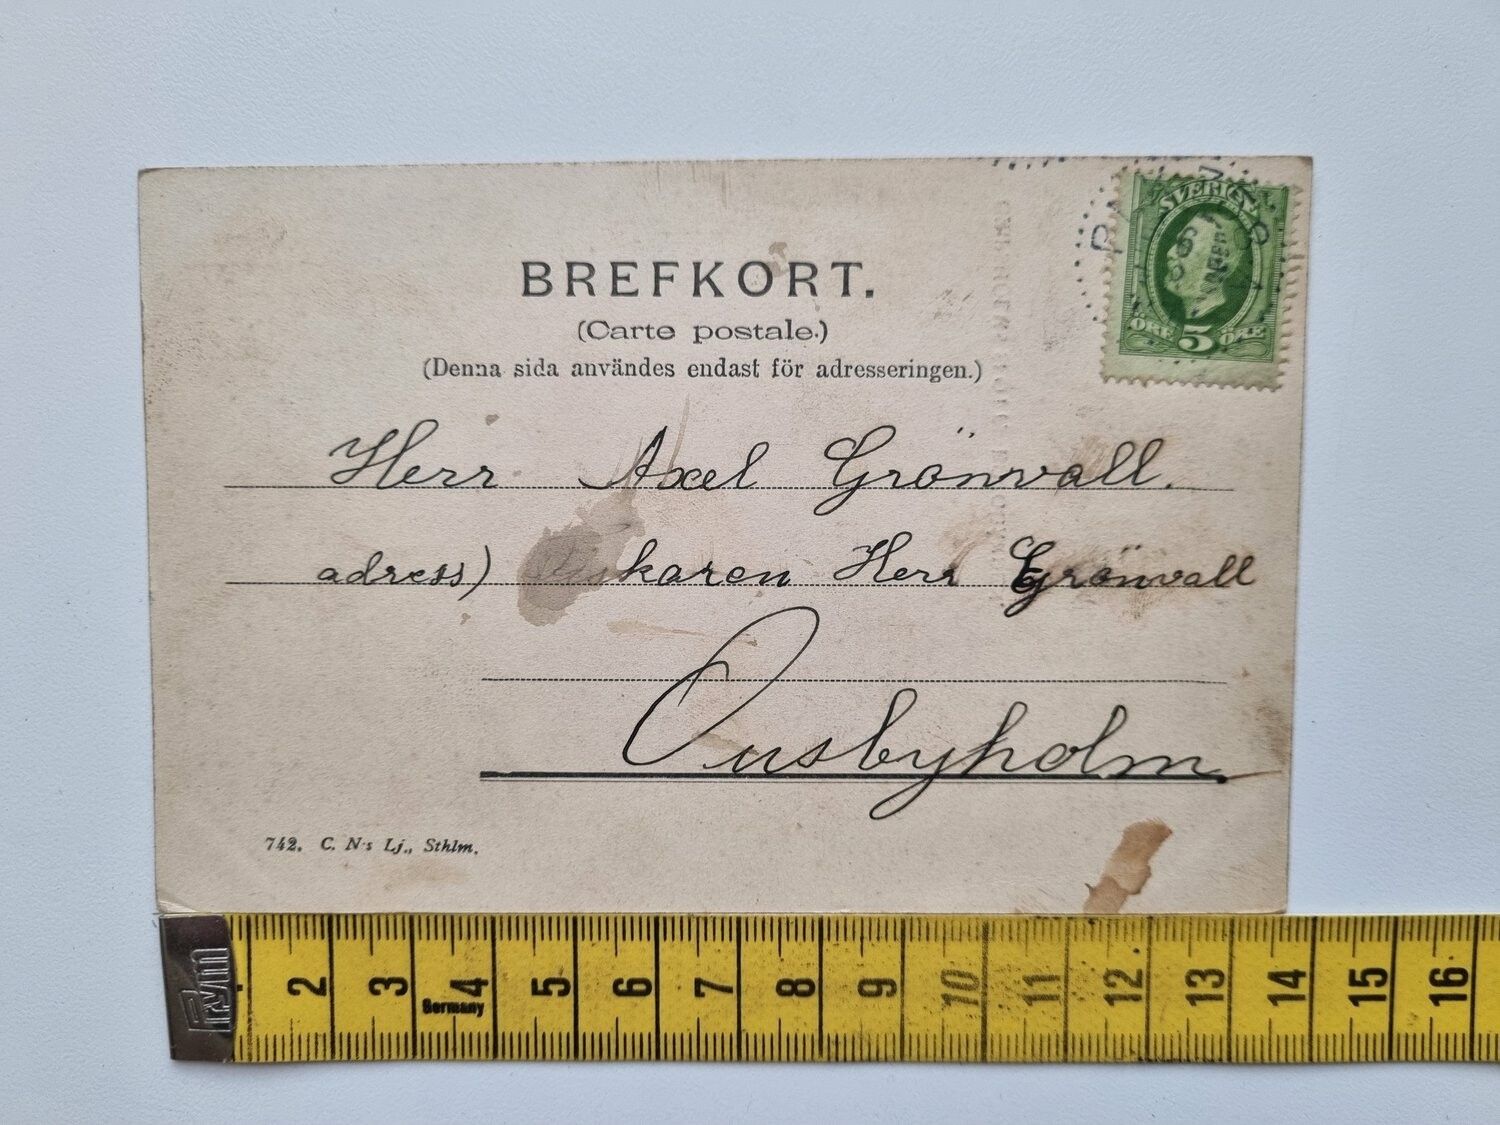 SVERIGE
ÖRE 5 ÖRE
BREFKORT.
(Carte postale.)
(Denna sida användes endast för adresseringen.)
Herr Axel Grönvall.
adress) Fiskaren Herr Grönvall
Ousbyholm.
742. C. N:s Lj., Sthlm.
Prym
2 3 4 5 6 7 8 9 10 11 12 13 14 15 16
Germany